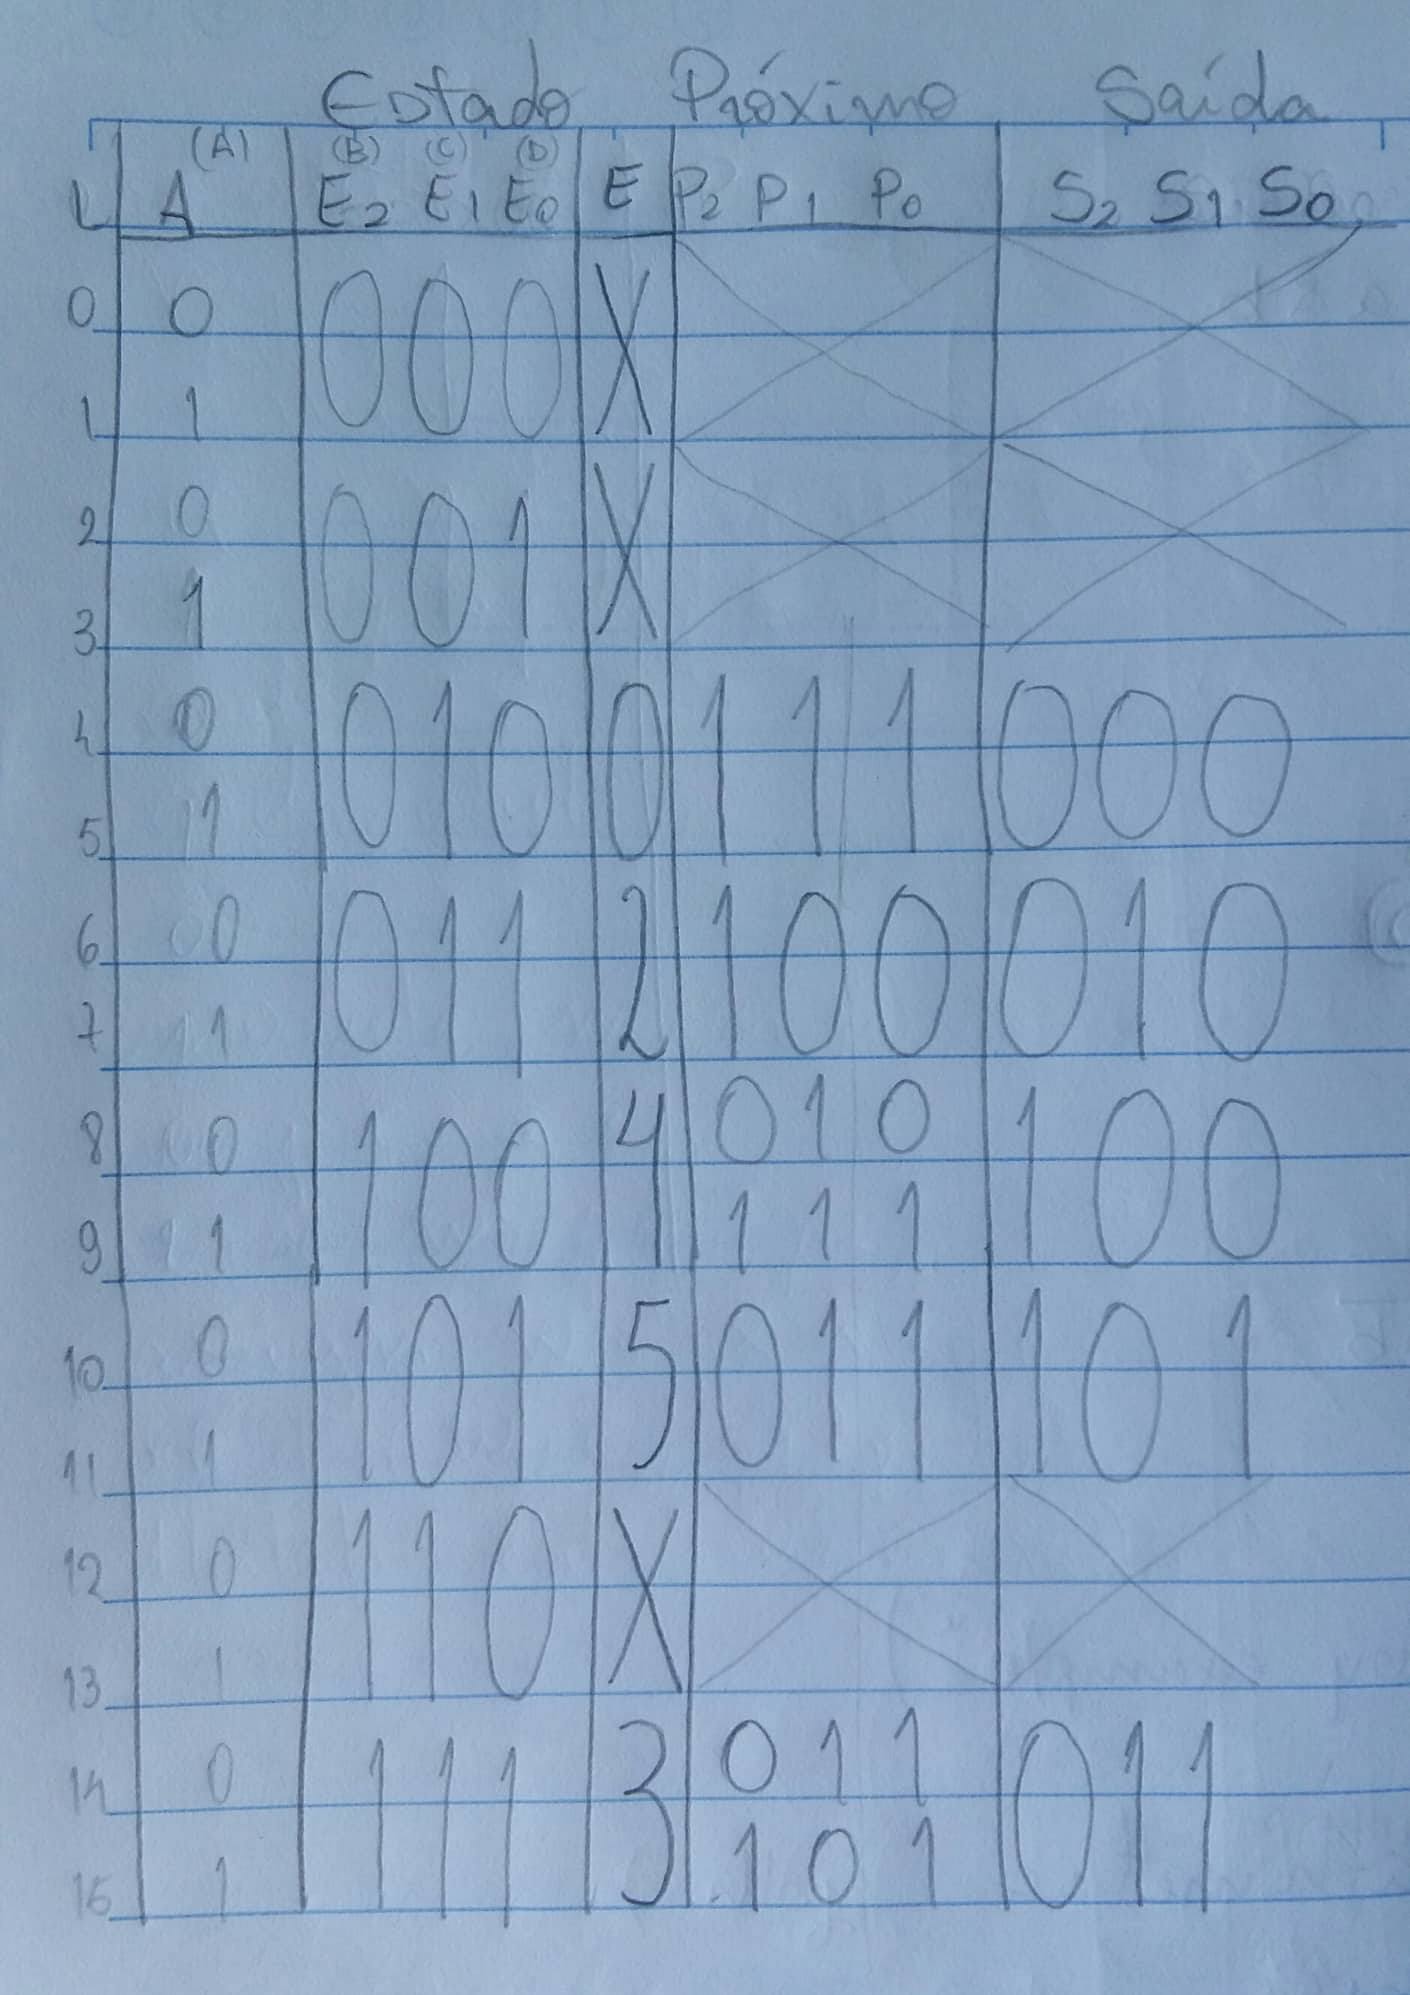 Estado Próximo Saída
(A) (B) (C) (D)
L A E2 E1 E0 E P2 P1 P0 S2 S1 S0
0 0 0 0 0 X
1 1
2 0 0 0 1 X
3 1
4 0 0 1 0 0 1 1 1 0 0 0
5 1
6 0 0 1 1 2 1 0 0 0 1 0
7 1
8 0 1 0 0 4 0 1 0 1 0 0
9 1 1 1 1
10 0 1 0 1 5 0 1 1 1 0 1
11 1
12 0 1 1 0 X
13 1
14 0 1 1 1 3 0 1 1 0 1 1
15 1 1 0 1